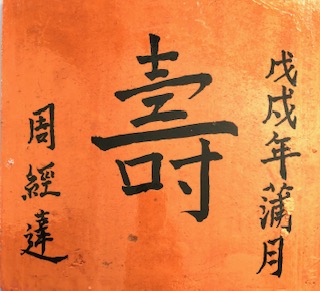 戊戌年蒲月
壽
周經達